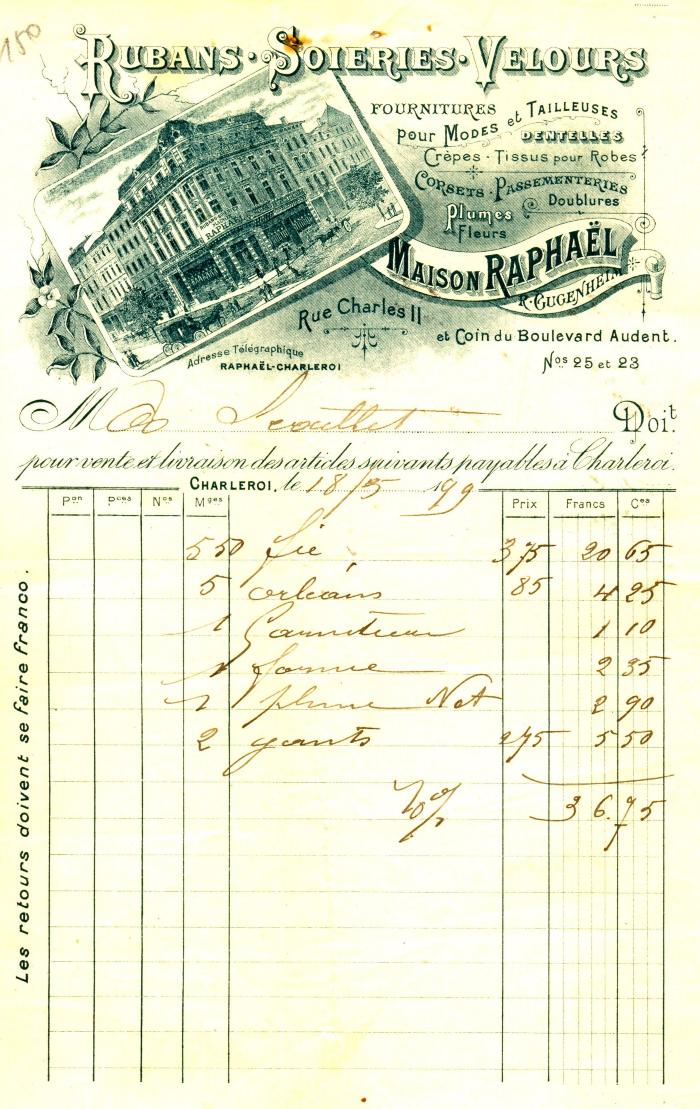 150
RUBANS · SOIERIES · VELOURS
FOURNITURES
pour MODES et TAILLEUSES
DENTELLES
Crêpes · Tissus pour Robes
CORSETS · PASSEMENTERIES
Doublures
Plumes
Fleurs
MAISON RAPHAËL
R. GUGENHEIM
RAPHAËL
Rue Charles II
et Coin du Boulevard Audent.
Nos 25 et 23
Adresse Télégraphique
RAPHAËL-CHARLEROI
M Doit.
pour vente et livraison des articles suivants payables à Charleroi.
CHARLEROI, le 18/5 99
Pon Pces Nos Mges Prix Francs Ces
5 50 fil 3 75 20 65
5 orléans 85 4 25
1 Garniture 1 10
1 forme 2 35
1 plume Net 2 90
2 gants 2 75 5 50
% 36.75
Les retours doivent se faire franco.